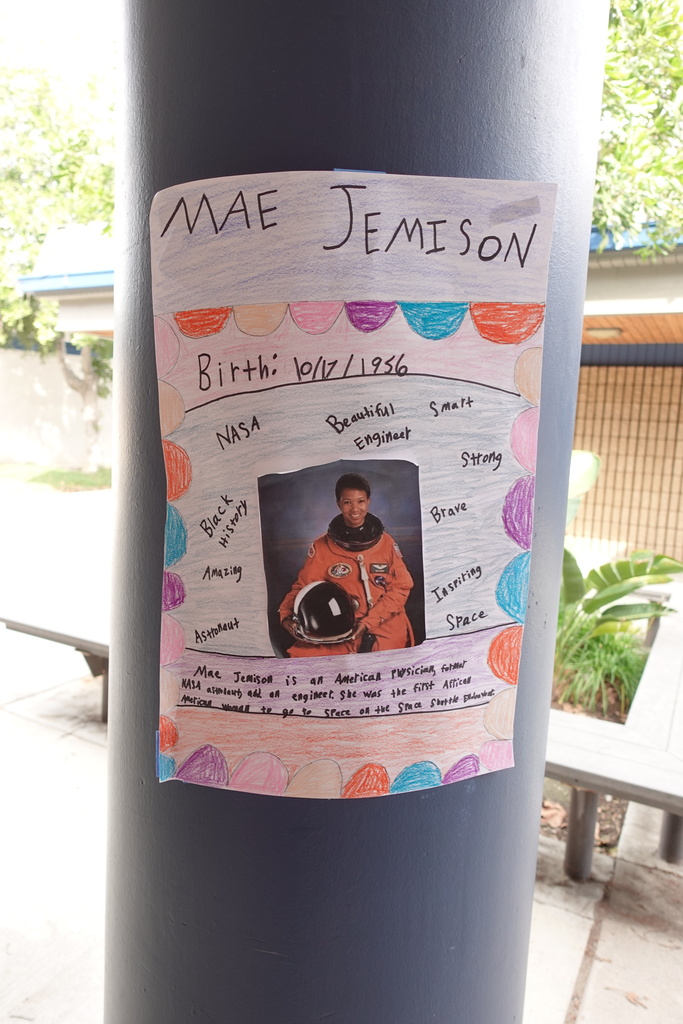 MAE JEMISON
Birth: 10/17/1956
NASA
Beautiful
Engineer
Smart
Strong
Black
History
Brave
Amazing
Inspiring
Astronaut
Space
Mae Jemison is an American physician, former
NASA astronaut, and an engineer. She was the first African
American woman to go to space on the Space Shuttle Endeavour.